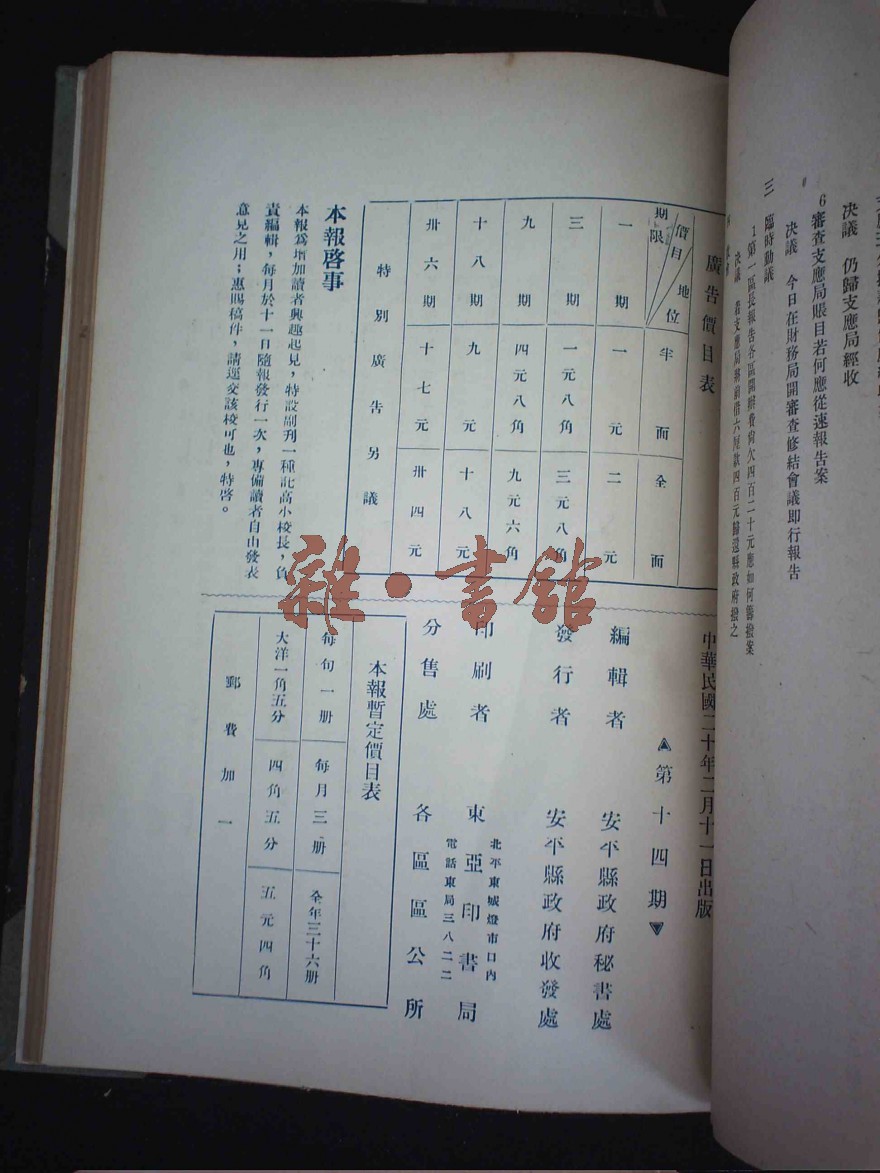 決議　仍歸支應局經收
6審查支應局賬目若何應從速報告案
決議　今日在財務局開審查修結會議即行報告
三　臨時動議
1第一區長報告各區開辦費尚欠四百二十元應如何籌撥案
廣告價目表
價目　地位　期限　半面　全面
一期　一元　二元
三期　一元八角　三元八角
九期　四元八角　九元六角
十八期　九元　十八元
卅六期　十七元　卅四元
特別廣告另議
本報啓事
本報爲增加讀者興趣起見，特設副刊一種託高小校長，負
責編輯，每月於十一日隨報發行一次，專備讀者自由發表
意見之用；惠賜稿件，請逕交該校可也，特啓。
中華民國二十年二月十一日出版
第十四期
編輯者　安平縣政府秘書處
發行者　安平縣政府收發處
印刷者　東亞印書局
北平東城燈市口內
電話東局三八二二
分售處　各區區公所
本報暫定價目表
每旬一册　每月三册　全年三十六册
大洋一角五分　四角五分　五元四角
郵費加一
雜·書館